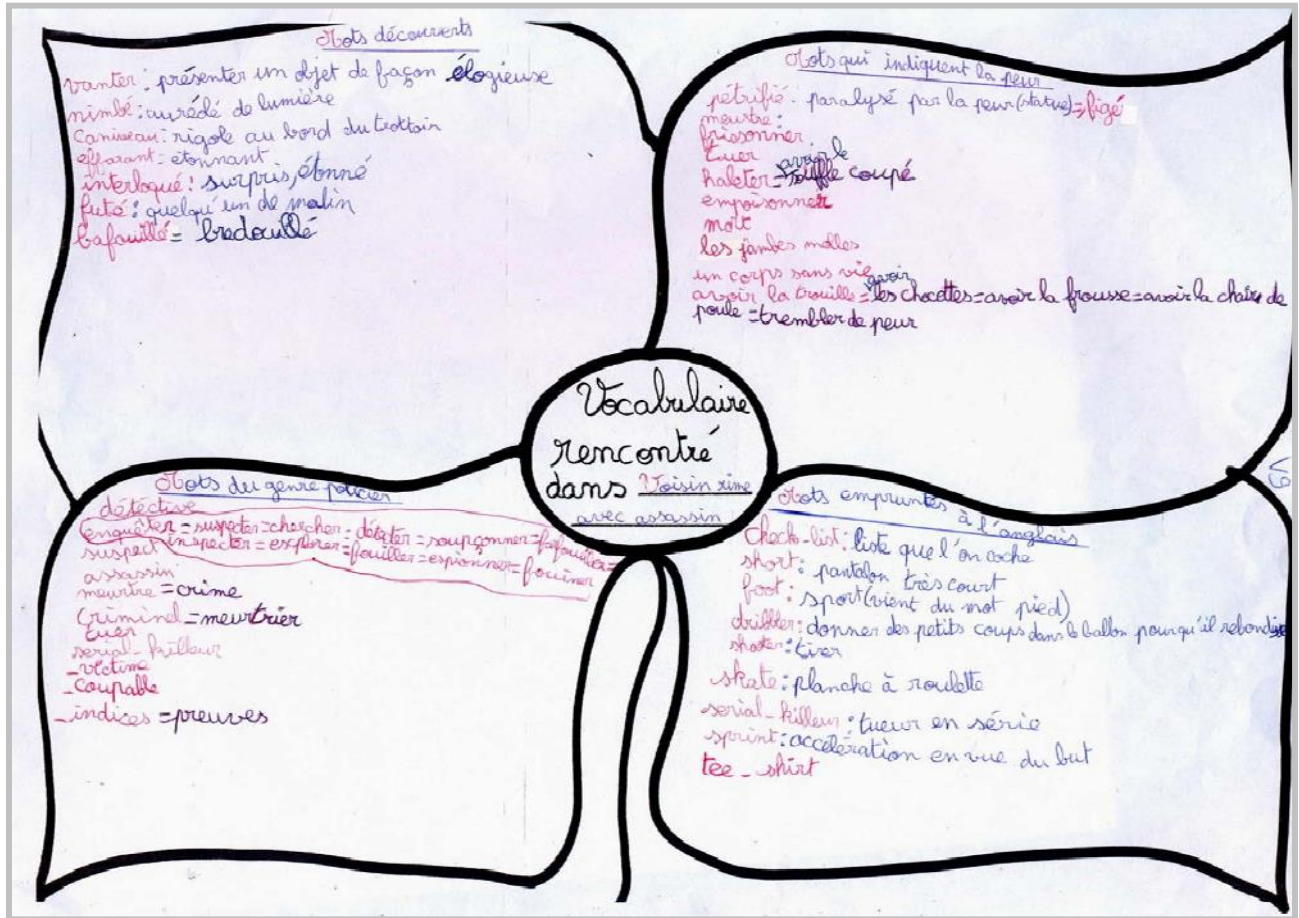 Mots découverts
vanter : présenter un objet de façon élogieuse
nimbé : aurédé de lumière
Caniveau : rigole au bord du trottoir
effarant : etonnant
interloqué : surpris, étonné
futé : quelqu'un de malin
bafouillé = bredouillé
Mots qui indiquent la peur
pétrifié : paralysé par la peur (statue) = figé
meurtre :
frissonner
tuer
haleter = avoir le souffle coupé
empoisonner
mort
les jambes molles
un corps sans vie
avoir la trouille = avoir les chocottes = avoir la frousse = avoir la chaire de
poule = trembler de peur
Vocabulaire
rencontré
dans Voisin rime
avec assassin
Mots du genre policier
détéctive
enquêter = suspecter = chercher = détécter = soupçonner = farfouiller =
inspecter = explorer = fouiller = espionner = fouiner
suspect
assassin
meurtre = crime
Criminel = meurtrier
tuer
serial-killeur
-victime
-coupable
-indices = preuves
Mots empruntés à l'anglais
Check-list : liste que l'on coche
short : pantalon très court
foot : sport (vient du mot pied)
dribbler : donner des petits coups dans le ballon pour qu'il rebondisse
shooter : tirer
skate : planche à roulette
serial-killeur : tueur en série
sprint : accélération en vue du but
tee-shirt